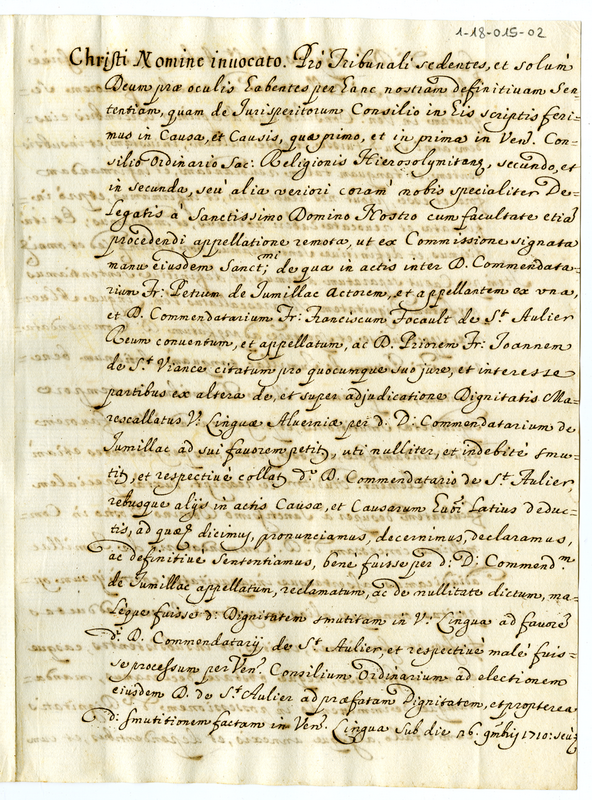 1-18-015-02
Christi Nomine invocato. Pro Tribunali sedentes, et solum
Deum præ oculis habentes per hanc nostram definitivam Sen=
tentiam, quam de Jurisperitorum Consilio in his scriptis feri=
mus in Causa, et Causis, quæ primo, et in prima in Ven. Con=
silio Ordinario Sac: Religionis Hierosolymitanę, secundo, et
in secunda, seu alia veriori coram nobis specialiter De=
Legatis à Sanctissimo Domino Nostro cum facultate etiã
procedendi appellatione remota, ut ex Commissione signata
manu eiusdem Sanct:mi de qua in actis inter D. Commendata=
rium Fr: Petrum de Jumillac Actorem, et appellantem ex una,
et D. Commendatarium Fr: Franciscum Focault de S.t Aulier
Reum conventum, et appellatum, ac D. Priorem Fr: Joannem
de S.t Viance citatum pro quocunque suo jure, et interesse
partibus ex altera de, et super adjudicatione Dignitatis Ma=
rescallatus V: Linguæ Alverniæ per d: D: Commendatarium de
Jumillac ad sui favorem petit, uti nulliter, et indebitè smu=
tit, et respectivè collat d: D. Commendatario de S.t Aulier,
rebusque alijs in actis Causæ, et Causarum Latius deduc=
tis, ad quæ dicimus, pronunciamus, decernimus, declaramus,
ac definitivè Sententiamus, benè fuisse per d: D: Commend.m
de Jumillac appellatum, reclamatum, ac de nullitate dictum, ma=
Leque fuisse d: Dignitatem smutitam in V: Lingua ad favorẽ
d: D. Commendatarij de S.t Aulier, et respectivè malè fuis=
se processum per Ven. Consilium Ordinarium ad electionem
eiusdem D. de S.t Aulier ad præfatam Dignitatem, et propterea
d: smutitionem factam in Ven. Lingua sub die 26. 1710: seu